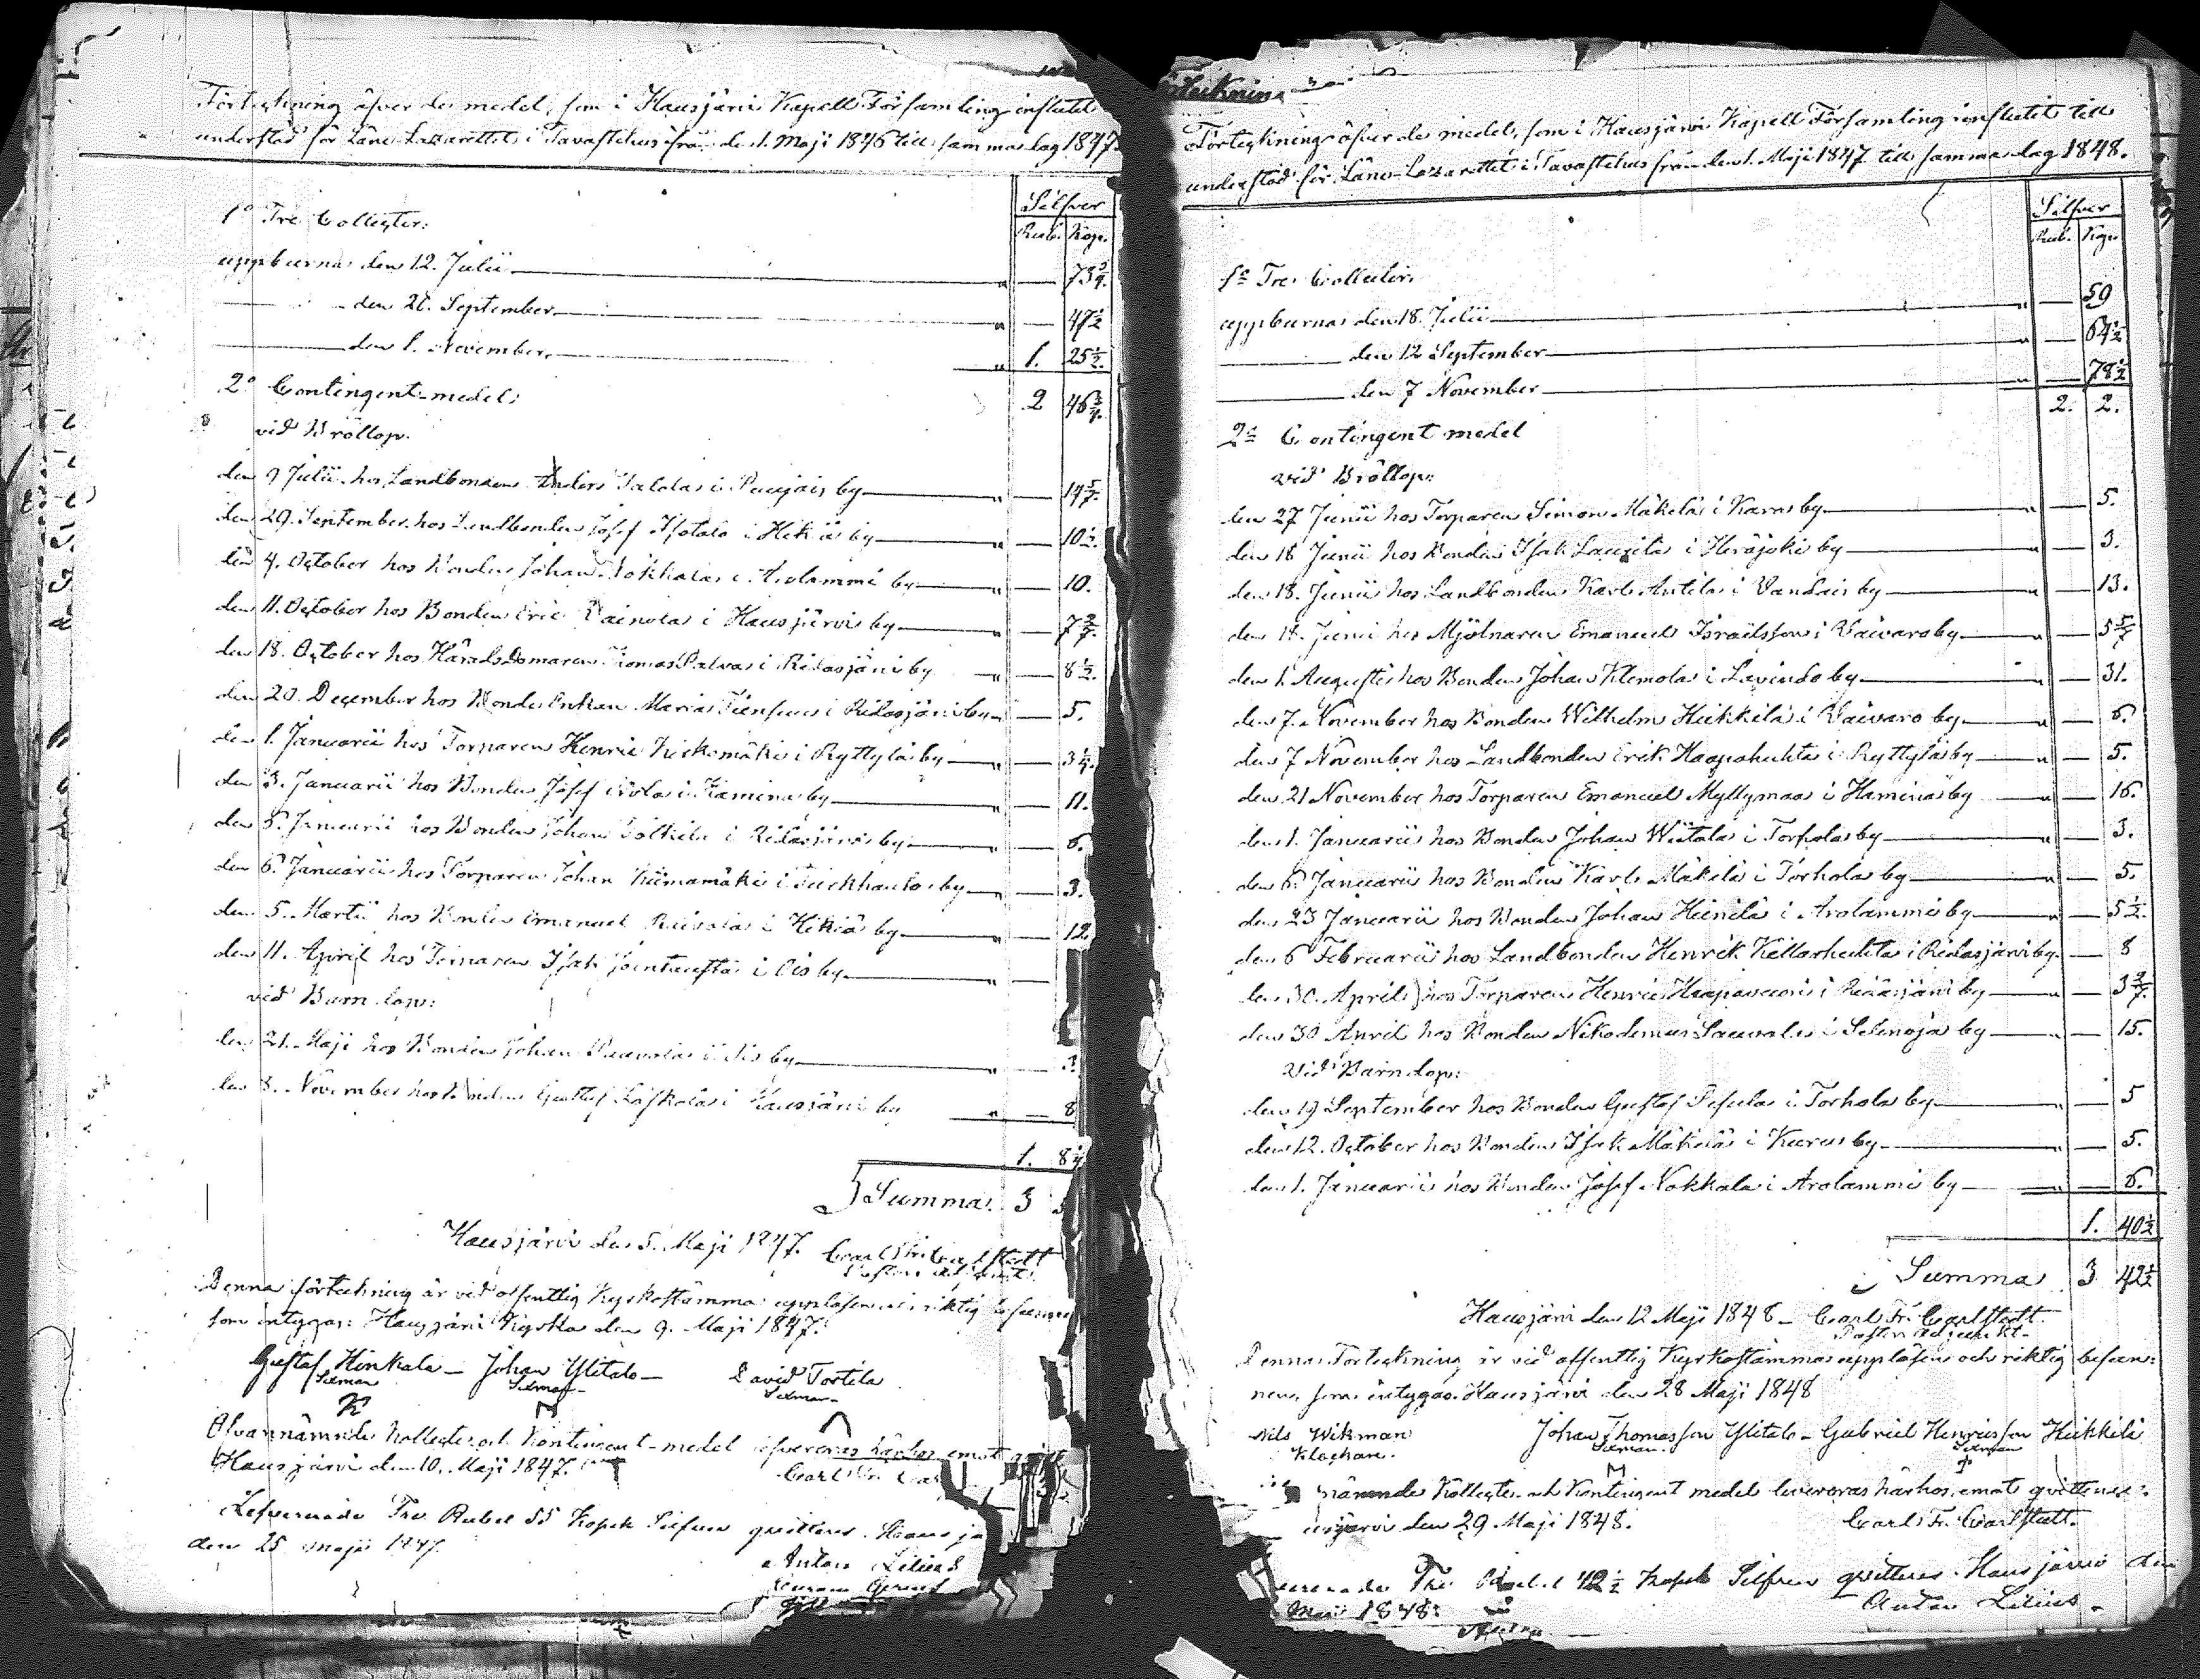 Förteckning öfver de medel, som i Hausjärvi Kapell Församling influtit
understöd för Läns-Lazarettet i Tavastehus från den 1. Maji 1846 till samma dag 1847.
Silfver
Rub. Kop.
1° Tre Collecter:
uppburna den 12. Julii " — 73 3/4.
den 20. September " — 47 1/2
den 1. November " 1. 25 1/2.
2 46 3/4.
2° Contingent-medel:
vid Bröllop.
den 9 Julii hos Landbonden Anders Talola i Puujais by " — 14 5/7.
den 29. September hos Landbonden Josef Isotalo i Hikiä by " — 10 1/2.
den 4. October hos Bonden Johan Nokkala i Arolammi by " — 10.
den 11. October hos Bonden Eric Vainola i Hausjärvi by " — 7 2/7.
den 18. October hos Häradsdomaren Thomas Palva i Ridasjärvi by " — 8 1/2.
den 20. December hos Bonde Enkan Maria i Ridasjärvi by " — 5.
den 1. Januarii hos Torparen Henric Kiiskemäki i Ryttylä by " — 3 1/4.
den 3. Januarii hos Bonden Josef i by " — 11.
den 6. Januarii hos Bonden Johan i Ridasjärvi by " — 6.
den 6. Januarii hos Torparen Johan Kiimamäki i by " — 3.
den 5. Martii hos Bonden Emanuel i Hikiä by " — 12
den 11. April hos Torparen Isak i Ois by " —
vid Barndop:
den 21. Maji hos Bonden Johan Paavola i Ois by " — 3
den 8. November hos Bonden Gustaf i Hausjärvi by " — 8
1. 8 1/4
Summa 3
Hausjärvi den 5. Maji 1847. Carl Fr. Carlstedt
Pastors adjunkt
Denna förteckning är vid offentlig Kyrkostämma uppläsen och riktig befunnen
som intygas: Hausjärvi Kyrka den 9. Maji 1847.
Gustaf Hinkala — Johan Ylitalo — David Tortila
Sexman Sexman Sexman
Ofvannämnde Kollecte och Kontingent-medel lefvereras härhos emot
Hausjärvi den 10. Maji 1847. Carl Fr. Car
Lefvererade Tre Rubel 55 Kopek Silfver qvitteras. Hausjä
den 25 Maji 1847.
Anton Lilius
Förteckning öfver de medel, som i Hausjärvi Kapell Församling influtit till
understöd för Läns-Lazarettet i Tavastehus från den 1. Maji 1847 till samma dag 1848.
Silfver
Rub. Kop.
1° Tre Collecter:
uppburna den 18. Julii " — 59
den 12 September " — 64 1/2
den 7 November " — 78 1/2
2. 2.
2° Contingent medel
vid Bröllop:
den 27 Junii hos Torparen Simon Mäkelä i Karas by — 5.
den 18 Junii hos Bonden Isak Laurila i Heräjoki by — 3.
den 18. Junii hos Landbonden Karl Antila i Vandais by " — 13.
den 18. Junii hos Mjölnaren Emanuel Israëlsson i Vaivaro by " — 5 5/7
den 1. Augusti hos Bonden Johan Klemola i Lavindo by " — 31.
den 7. November hos Bonden Wilhelm Heikkilä i Vaivaro by " — 6.
den 7 November hos Landbonden Erik Haapahuhta i Ryttylä by " — 5.
den 21 November hos Torparen Emanuel Myllymaa i Haminas by " — 16.
den 1. Januarii hos Bonden Johan Wiitala i Torhola by " — 3.
den 6. Januarii hos Bonden Karl Mäkilä i Torhola by " — 5.
den 23 Januarii hos Bonden Johan Heinilä i Arolammi by " — 5 1/2.
den 6 Februarii hos Landbonden Henrik Kellarhuhta i Ridasjärvi by — 8
den 30. April hos Torparen Henric Haapavuori i Ridasjärvi by " — 3 2/7.
den 30 April hos Bonden Nikodemus Sauvala i Selenoja by " — 15.
vid Barndop:
den 19 September hos Bonden Gustaf Pesula i Torhola by " — 5
den 12. October hos Bonden Isak Mäkelä i Karas by " — 5.
den 1. Januarii hos Bonden Josef Nokkala i Arolammi by " — 6.
1. 40 1/2
Summa 3 42 1/2
Hausjärvi den 12 Maji 1848 — Carl Fr. Carlstedt.
Pastors Adjunkt.
Denna Förteckning är vid offentlig Kyrkostämma uppläsen och riktig befun-
nen, som intygas. Hausjärvi den 28 Maji 1848
Nils Wikman Johan Thomasson Ylitalo — Gabriel Henricsson Heikkilä
Klockare. Sexman. Sexman
nämnde Kollecte och Kontingent medel levereras härhos, emot qvittence.
usjärvi den 29 Maji 1848. Carl Fr. Carlstedt.
vererade Tre Rubel 42 1/2 Kopek Silfver qvitteras. Hausjärvi den
Maji 1848. Anton Lilius.